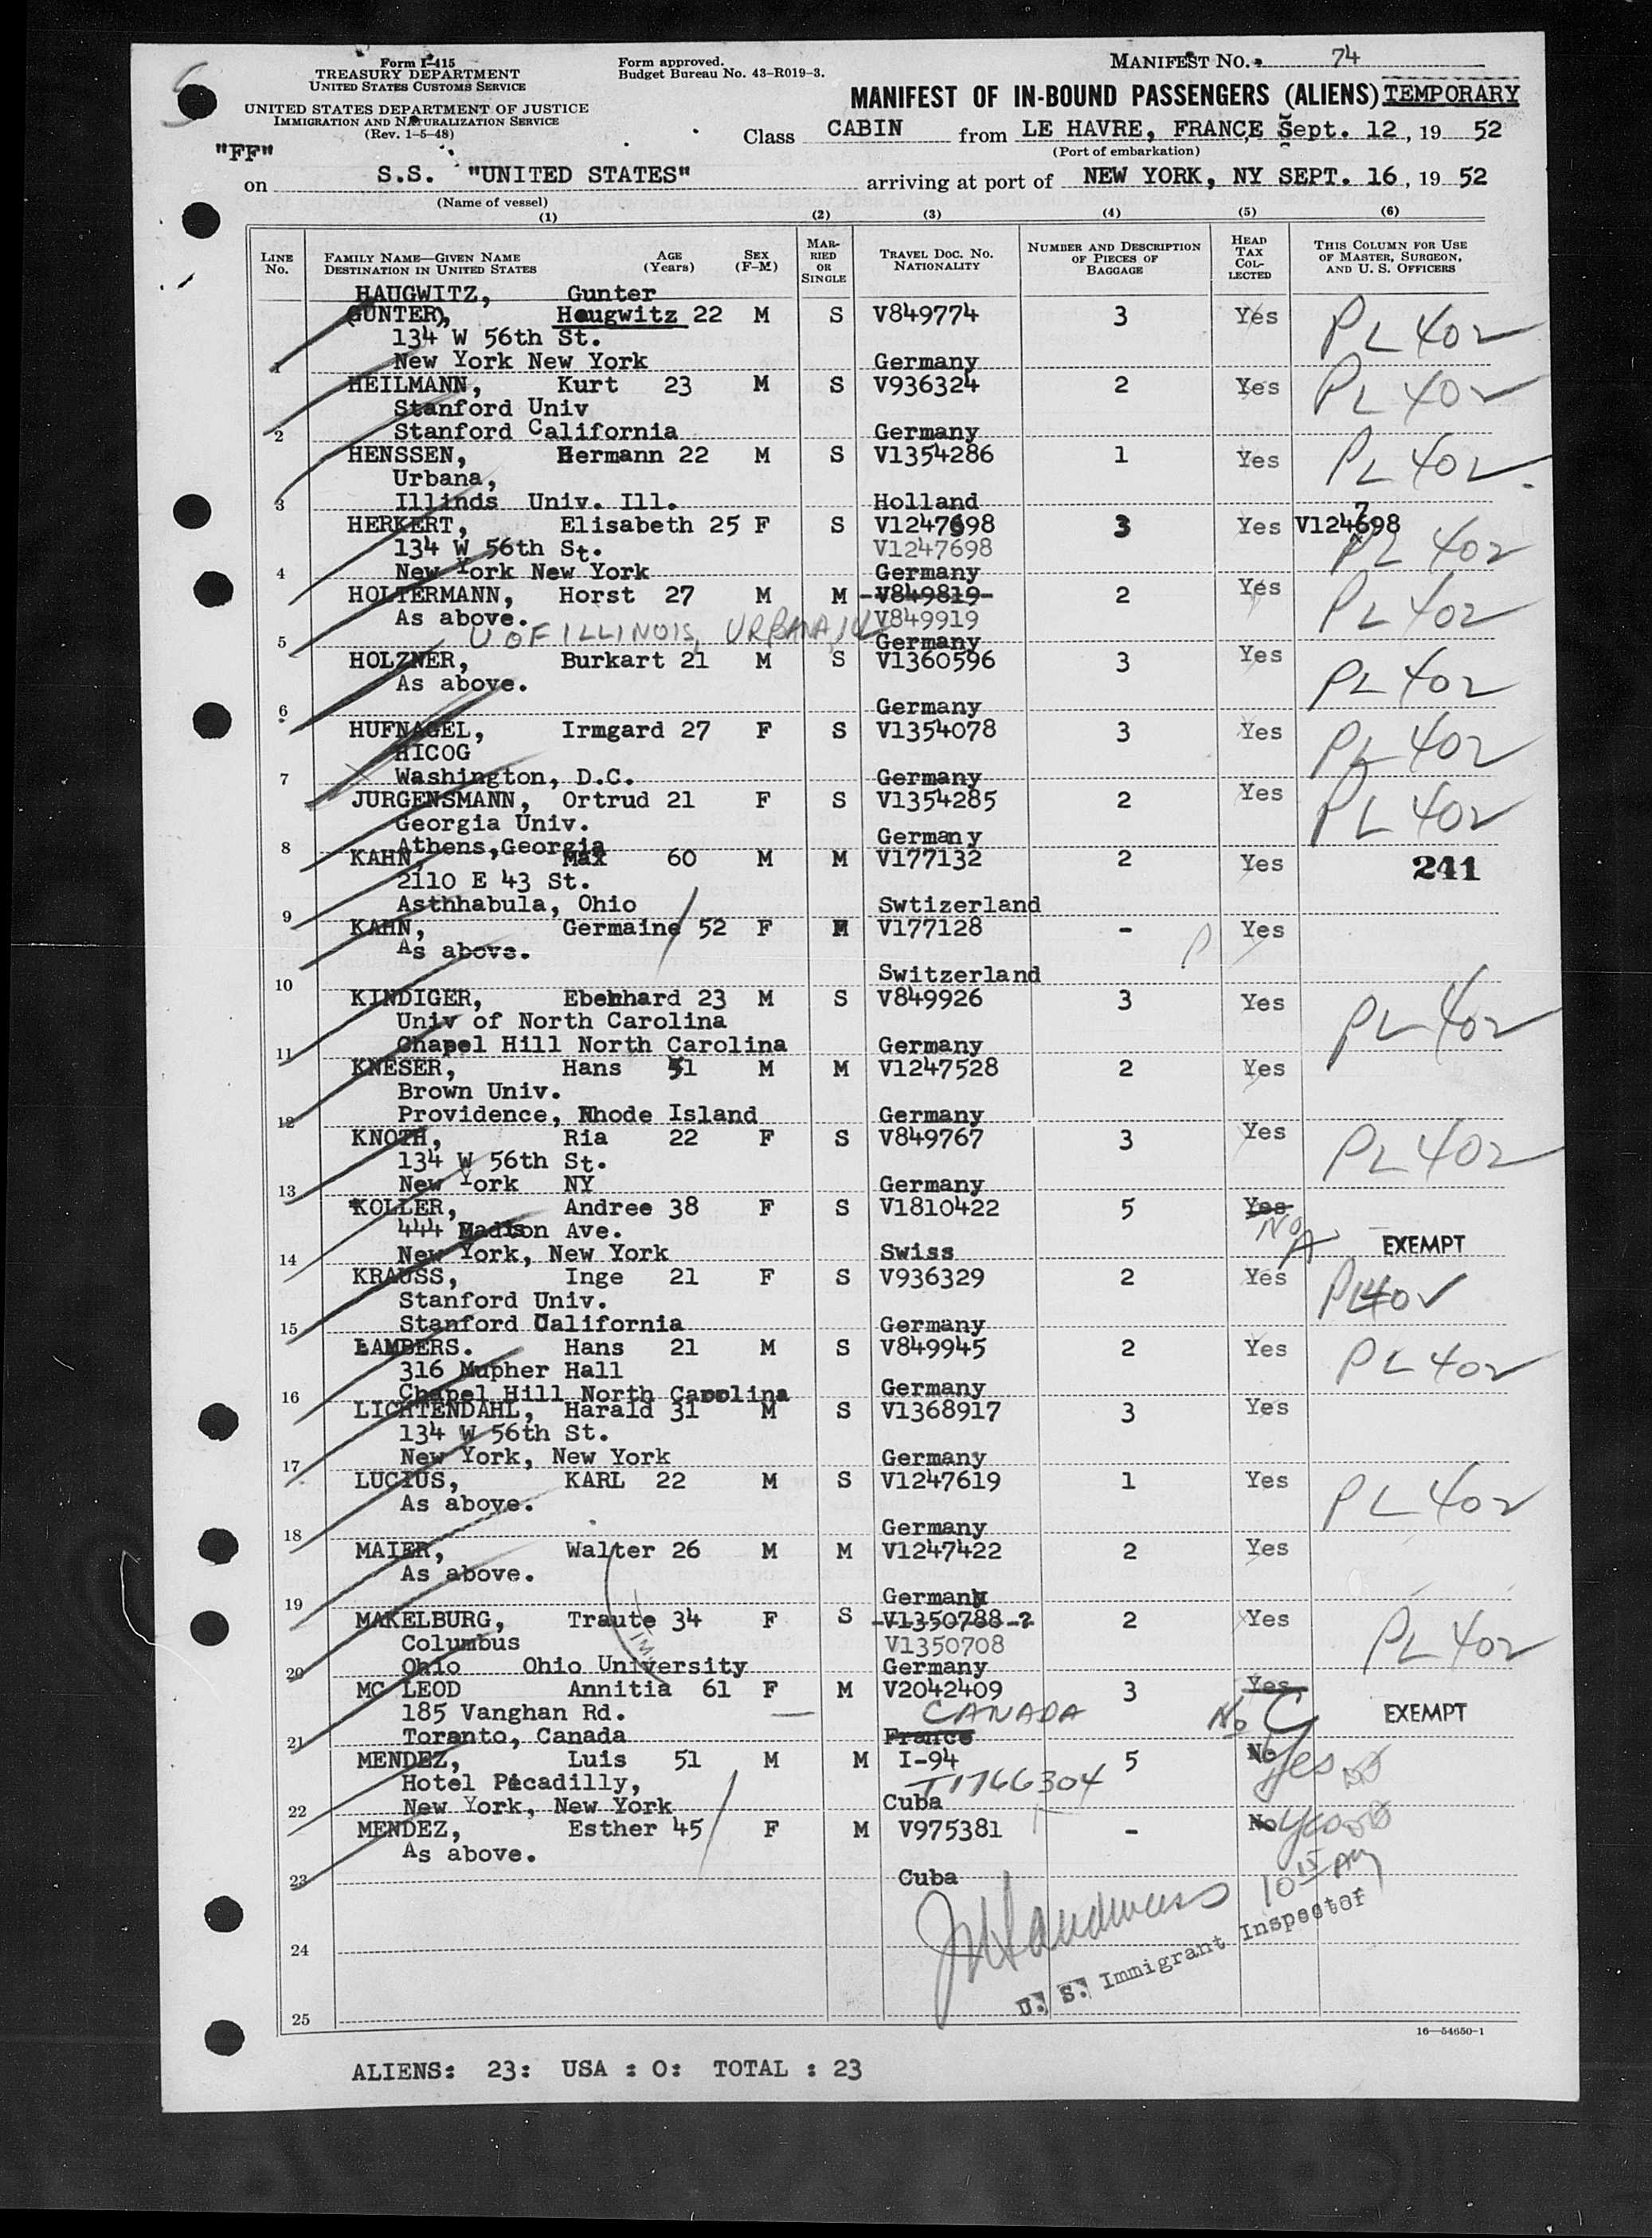 Form I-415
TREASURY DEPARTMENT
UNITED STATES CUSTOMS SERVICE
UNITED STATES DEPARTMENT OF JUSTICE
IMMIGRATION AND NATURALIZATION SERVICE
(Rev. 1-5-48)
Form approved.
Budget Bureau No. 43-R019-3.
MANIFEST NO. 74
MANIFEST OF IN-BOUND PASSENGERS (ALIENS) TEMPORARY
Class CABIN from LE HAVRE, FRANCE, Sept. 12, 19 52
(Port of embarkation)
"FF"
on S.S. "UNITED STATES" arriving at port of NEW YORK, NY SEPT. 16, 19 52
(Name of vessel)
(1) (2) (3) (4) (5) (6)
LINE No. FAMILY NAME—GIVEN NAME DESTINATION IN UNITED STATES AGE (Years) SEX (F-M) MARRIED OR SINGLE TRAVEL DOC. NO. NATIONALITY NUMBER AND DESCRIPTION OF PIECES OF BAGGAGE HEAD TAX COLLECTED THIS COLUMN FOR USE OF MASTER, SURGEON, AND U. S. OFFICERS
HAUGWITZ, Gunter
(GUNTER), Haugwitz 22 M S V849774 3 Yes PL 402
134 W 56th St.
1 New York New York Germany
HEILMANN, Kurt 23 M S V936324 2 Yes PL 402
Stanford Univ
2 Stanford California Germany
HENSSEN, Hermann 22 M S V1354286 1 Yes PL 402
Urbana,
3 Illinds Univ. Ill. Holland
HERKERT, Elisabeth 25 F S V1247698 3 Yes V124698 7
134 W 56th St. V1247698 PL 402
4 New York New York Germany
HOLTERMANN, Horst 27 M M V849819 2 Yes PL 402
As above. V849919
U OF ILLINOIS, URBANA, ILL
5 Germany
HOLZNER, Burkart 21 M S V1360596 3 Yes PL 402
As above.
6 Germany
HUFNAGEL, Irmgard 27 F S V1354078 3 Yes PL 402
HICOG
7 Washington, D.C. Germany
JURGENSMANN, Ortrud 21 F S V1354285 2 Yes PL 402
Georgia Univ.
8 Athens,Georgia Germany
KAHN, Max 60 M M V177132 2 Yes 241
2110 E 43 St.
9 Asthhabula, Ohio Swtizerland
KAHN, Germaine 52 F M V177128 - Yes
As above.
10 Switzerland
KINDIGER, Ebehhard 23 M S V849926 3 Yes PL 402
Univ of North Carolina
11 Chapel Hill North Carolina Germany
KNESER, Hans 51 M M V1247528 2 Yes
Brown Univ.
12 Providence, Rhode Island Germany
KNOTH, Ria 22 F S V849767 3 Yes PL 402
134 W 56th St.
13 New York NY Germany
KOLLER, Andree 38 F S V1810422 5 Yes
444 Madison Ave. No A EXEMPT
14 New York, New York Swiss
KRAUSS, Inge 21 F S V936329 2 Yes PL 402
Stanford Univ.
15 Stanford California Germany
LAMBERS. Hans 21 M S V849945 2 Yes PL 402
316 Mupher Hall
16 Chapel Hill North Carolina Germany
LICHTENDAHL, Harald 31 M S V1368917 3 Yes
134 W 56th St.
17 New York, New York Germany
LUCIUS, KARL 22 M S V1247619 1 Yes PL 402
As above.
18 Germany
MAIER, Walter 26 M M V1247422 2 Yes
As above.
19 Germany
MAKELBURG, Traute 34 F S V1350788 ? 2 Yes PL 402
Columbus V1350708
20 Ohio Ohio University Germany
MC LEOD Annitia 61 F M V2042409 3 Yes
185 Vanghan Rd. CANADA No C EXEMPT
21 Toranto, Canada France
MENDEZ, Luis 51 M M I-94 5 No Yes
Hotel Picadilly, T1766304
22 New York, New York Cuba
MENDEZ, Esther 45 F M V975381 - No Yes
As above.
23 Cuba
10 15 AM
U. S. Immigrant Inspector
24
25
16—54650-1
ALIENS: 23: USA : 0: TOTAL : 23